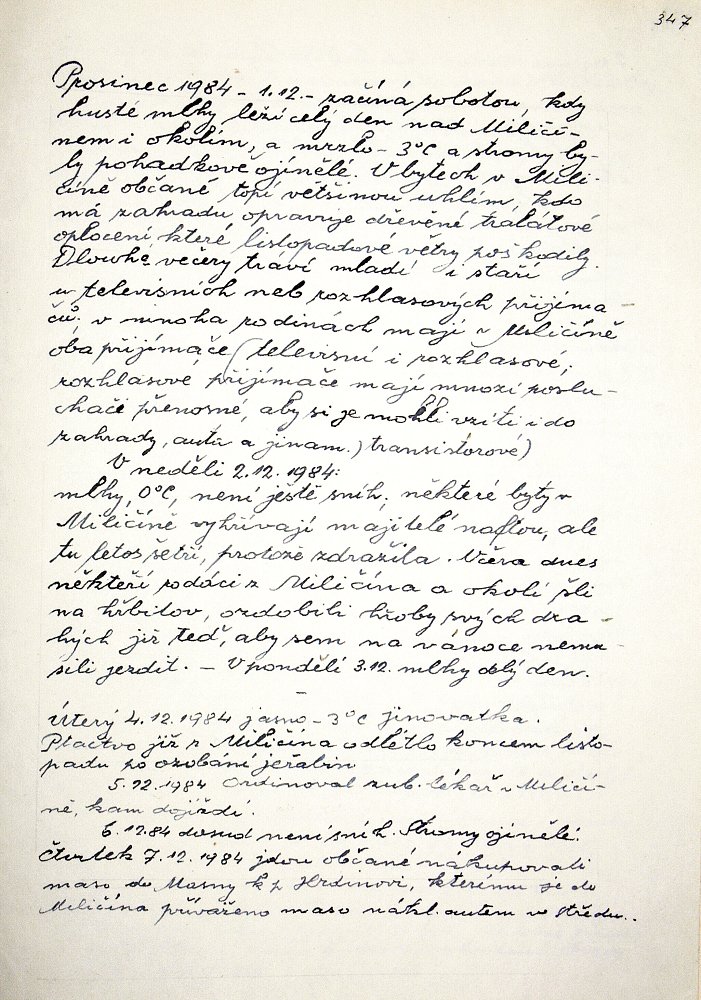 347
Prosinec 1984 - 1.12. - začíná sobotou, kdy
husté mlhy leží celý den nad Miličí-
nem i okolím, a mrzlo - 3°C a stromy by-
ly pohádkově ojínělé. V bytech v Mili-
číně občané topí většinou uhlím, kdo
má zahradu opravuje dřevěné tralátové
oplocení, které listopadové větry poškodily.
Dlouhe večery tráví mladí i staří
u televisních neb rozhlasových přijíma-
čů; v mnoha rodinách mají v Miličíně
oba přijímače (televisní i rozhlasové;
rozhlasové přijímače mají mnozí poslu-
chači přenosné, aby si je mohli vzíti i do
zahrady, autů a jinam.) transistorové)
V neděli 2.12. 1984:
mlhy, 0°C, není ještě sníh; některé byty v
Miličíně vyhřívají majitelé naftou, ale
tu letos šetří, protože zdražila. Včera dnes
někteří rodáci z Miličína a okolí šli
na hřbitov, ozdobili hroby svých dra-
hých již teď, aby sem na vánoce nemu-
sili jezdit. - V pondělí 3.12. mlhy celý den.
-
Úterý 4.12.1984 jasno - 3°C jinovatka.
Ptactvo již z Miličína odlétlo koncem listo-
padu po ozobání jeřabin
5.12.1984 Ordinoval zub. lékař v Miličí-
ně, kam dojíždí.
6.12.84 dosud není sníh. Stromy ojínělé.
Čtvrtek 7.12.1984 jdou občané nakupovati
maso do Masny k p. Hrdinovi, kterému je do
Miličína přiváženo maso nákl. autem ve středu..